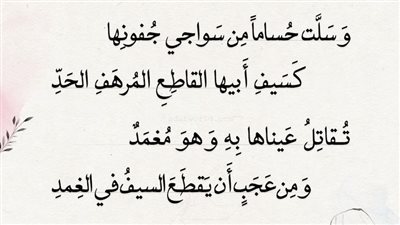 وَسَلَّت حُساماً مِن سَواجي جُفونِها
كَسَيفِ أَبيها القاطِعِ المُرهَفِ الحَدِّ
تُقاتِلُ عَيناها بِهِ وَهوَ مُغمَدٌ
وَمِن عَجَبٍ أَن يَقطَعَ السيفُ في الغِمدِ